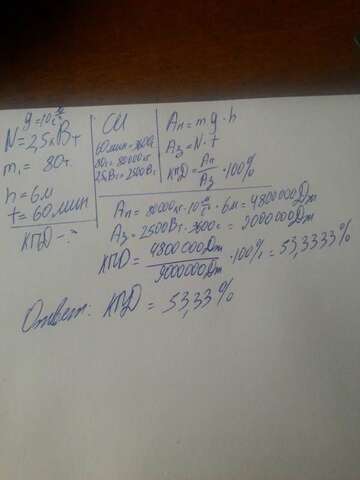 g=10 м/с²
N=2,5кВт
m=80т.
h=6м
t=60мин
КПД-?
СИ
60мин=3600с
80т=80000кг
2,5кВт=2500Вт
Aп=m.g.h
Aз=N.t
КПД=Aп/Aз·100%
Aп=80000кг·10 м/с²·6м=4800000Дж
Aз=2500Вт·3600с=9000000Дж
КПД=4800000Дж/9000000Дж·100%=53,3333%
Ответ: КПД=53,33%